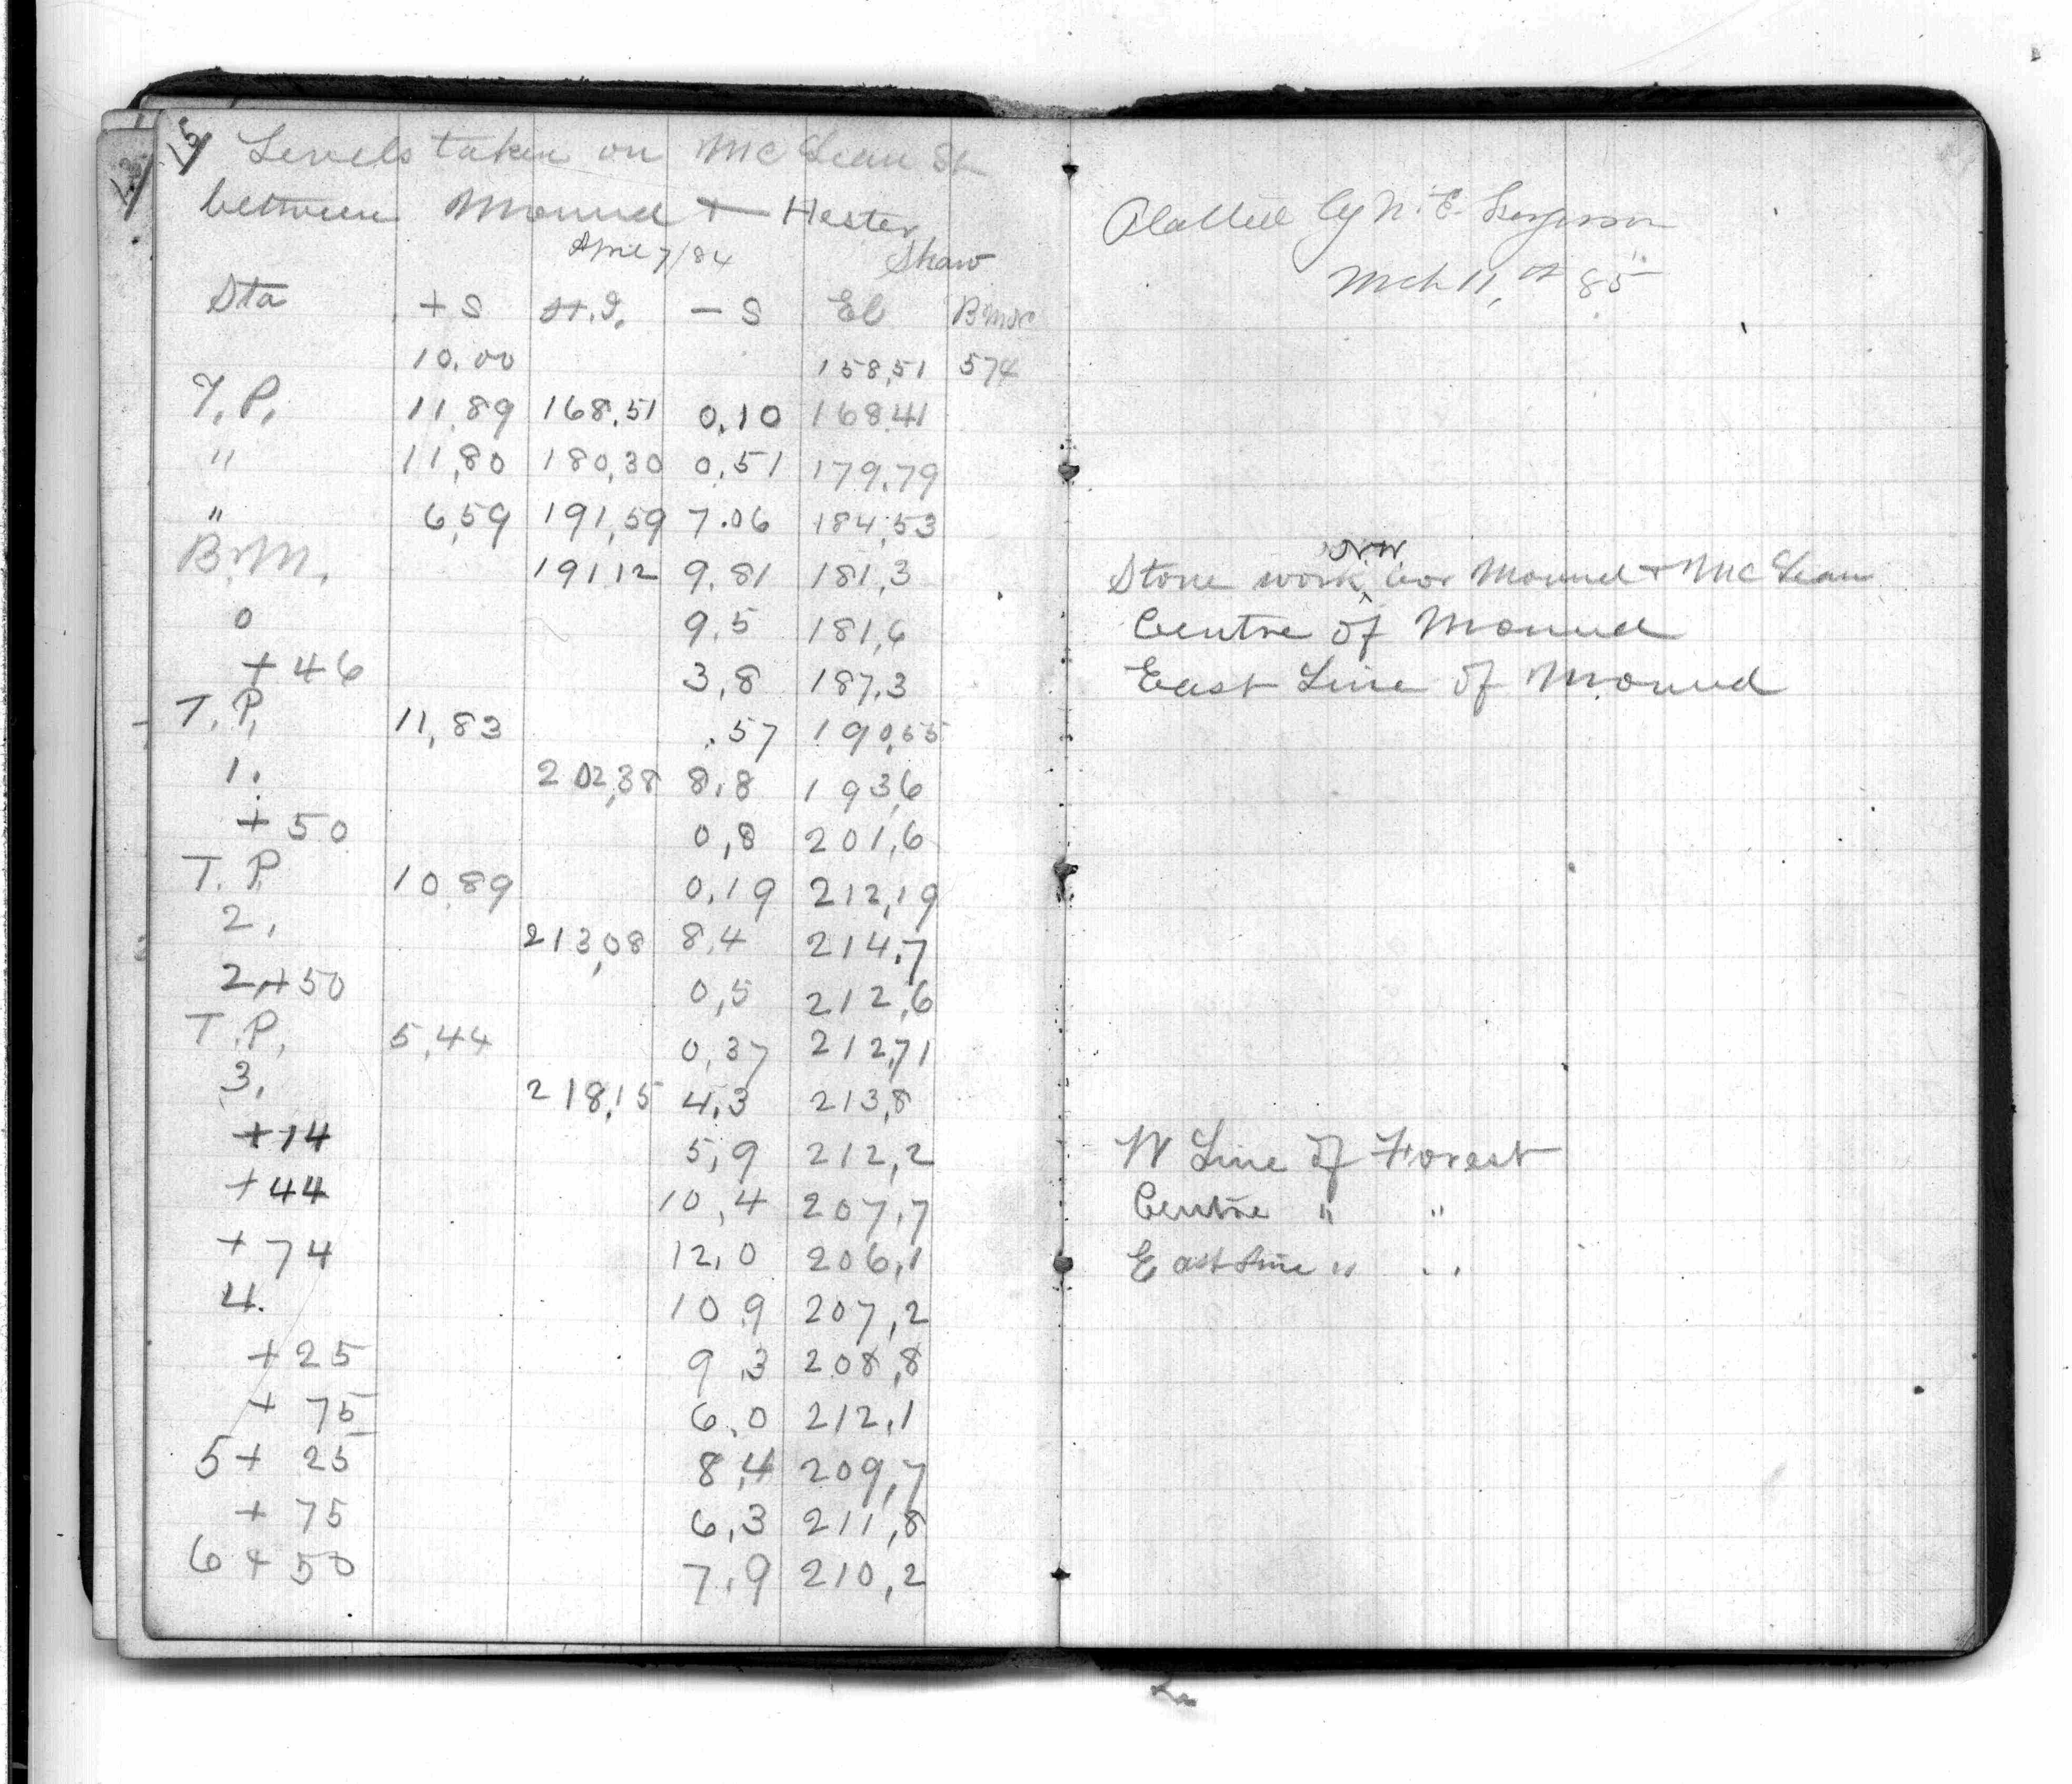 15
Levels taken on McLean St
between Mound + Hester
April 7/84 Shaw
Sta + S H.I. - S El B.M.
10.00 158,51 574
T.P. 11,89 168,51 0,10 168,41
" 11,80 180,30 0,51 179,79
" 6,59 191,59 7.06 184,53
B.M. 191,12 9,81 181,3
0 9,5 181,6
+46 3,8 187,3
T.P. 11,83 .57 190,55
1. 202,38 8,8 193,6
+50 0,8 201,6
T.P 10,89 0,19 212,19
2. 213,08 8,4 214,7
2,+50 0,5 212,6
T.P. 5,44 0,37 212,71
3. 218,15 4,3 213,8
+14 5,9 212,2
+44 10,4 207,7
+74 12,0 206,1
4. 10,9 207,2
+25 9,3 208,8
+ 75 6,0 212,1
5+ 25 8,4 209,7
+ 75 6,3 211,8
6 + 50 7,9 210,2
Platted by N. E. Ferguson
Mch 11, 85
Stone work NW Cor Mound + McLean
Centre of Mound
East Line of Mound
W Line of Forest
Centre " "
East Line " "